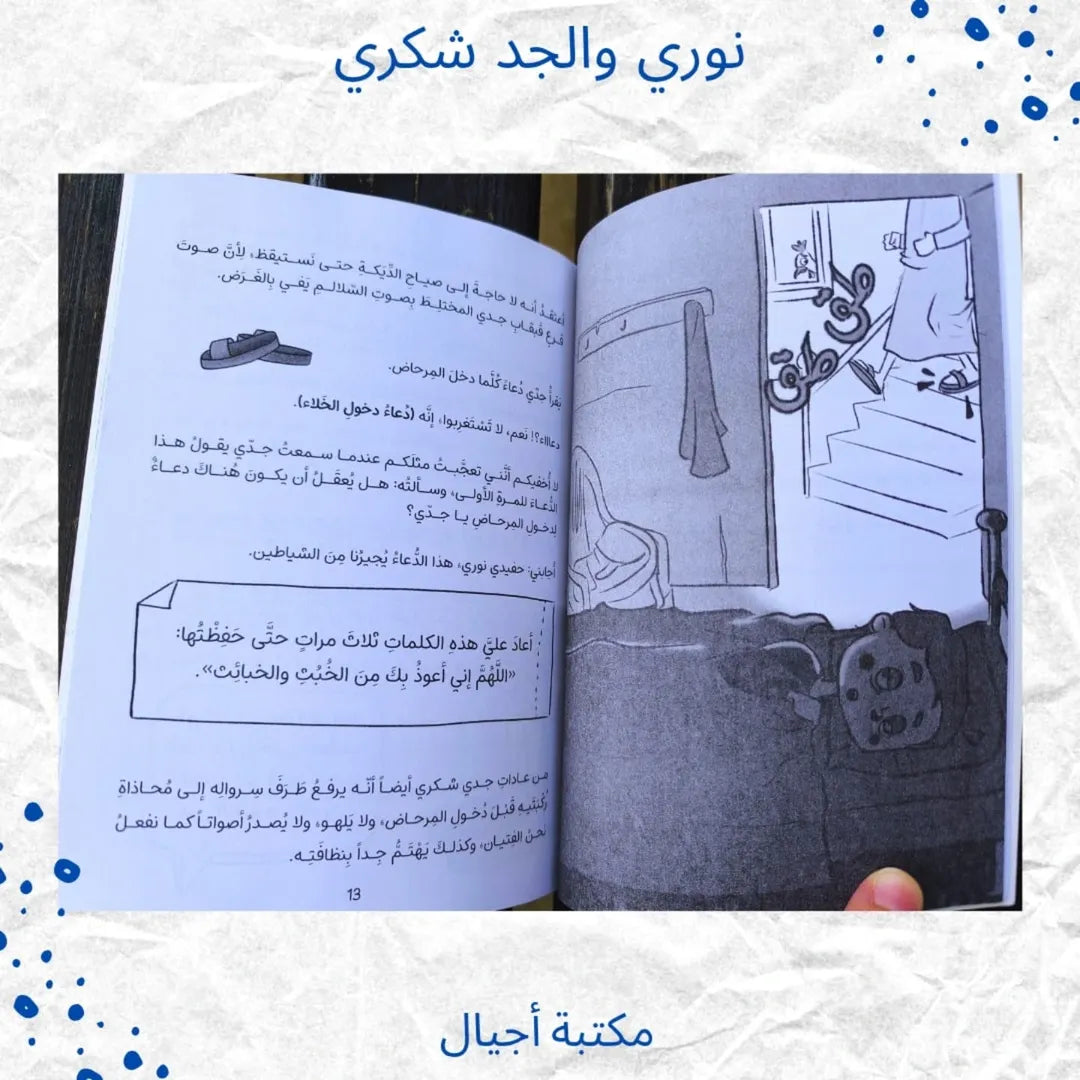 نوري والجد شكري
أعتقدُ أنه لا حاجةَ إلى صياحِ الدِّيَكةِ حتى نَستيقظ، لِأنَّ صوتَ
قرعِ قبقابِ جدي المختلِطَ بِصوتِ السّلالمِ يَفي بِالغَرَض.
يَقرأُ جدّي دُعاءً كُلَّما دخلَ المِرحاض.
دعاااء؟! نَعم، لا تَسْتَغرِبوا، إنَّه (دُعاءُ دخولِ الخَلاء).
لا أُخفيكم أنَّني تعجَّبتُ مثلَكم عندما سمعتُ جدّي يقولُ هذا
الدُّعاءَ للمرةِ الأولى، وسألتُه: هل يُعقَلُ أن يكونَ هُناكَ دعاءٌ
لِدخولِ المِرحاضِ يا جدّي؟
أجابني: حفيدي نوري، هذا الدُّعاءُ يُجيرُنا مِنَ الشياطين.
أعادَ عليَّ هذهِ الكلماتِ ثلاثَ مراتٍ حتَّى حَفِظْتُها:
«اللَّهُمَّ إني أعوذُ بِكَ مِنَ الخُبُثِ والخبائِث».
مِن عاداتِ جدي شكري أيضاً أنّه يرفعُ طَرَفَ سِروالِه إلى مُحاذاةِ
رُكبَتَيهِ قَبْلَ دُخولِ المِرحاض، ولا يَلهو، ولا يُصدرُ أصواتاً كما نفعلُ
نحنُ الفِتيان، وكذلكَ يَهْتَمُّ جِداً بِنظافَتِه.
13
طق
طق
مكتبة أجيال